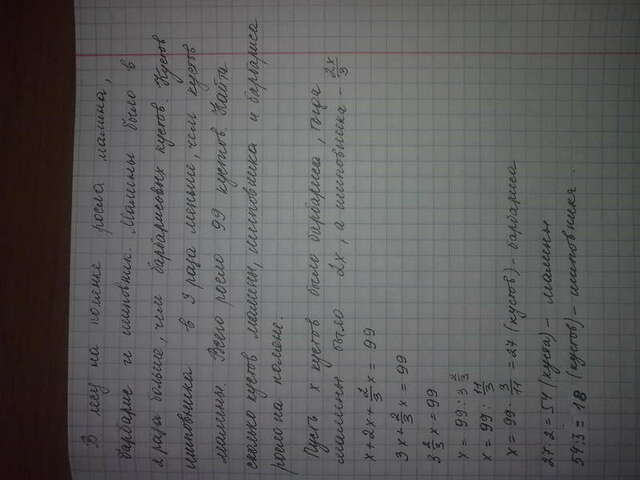 В лесу на поляне росла малина,
барбарис и шиповник. Малины было в
2 раза больше, чем барбарисовых кустов. Кустов
шиповника в 3 раза меньше, чем кустов
малины. Всего росло 99 кустов. Найти
сколько кустов малины, шиповника и барбариса
росло на поляне.
Пусть х кустов было барбариса, тогда
малины было 2х, а шиповника - 2х/3
х + 2х + 2/3 х = 99
3х + 2/3 х = 99
3 2/3 х = 99
х = 99 : 3 2/3
х = 99 : 11/3
х = 99 · 3/11 = 27 (кустов) - барбариса
27·2 = 54 (куста) - малины
54:3 = 18 (кустов) - шиповника.